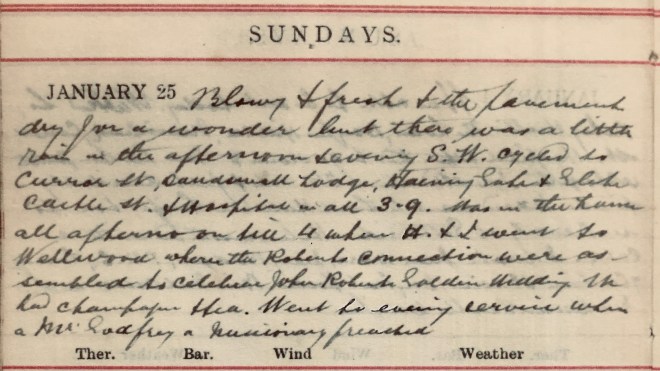 SUNDAYS.
JANUARY 25 Blowy & fresh & the pavement
dry for a wonder but there was a little
rain in the afternoon & evening S. W. cycled to
St, Lodge, &
Castle St. & Hospital in all 3-9. Was in the house
all afternoon till 4 when H. & I went to
Wellwood where the Roberts connection were as-
sembled to celebrate John Roberts Golden Wedding
had champagne & tea. Went to evening service when
a Mr. Godfrey a Missionary preached
Ther. Bar. Wind Weather